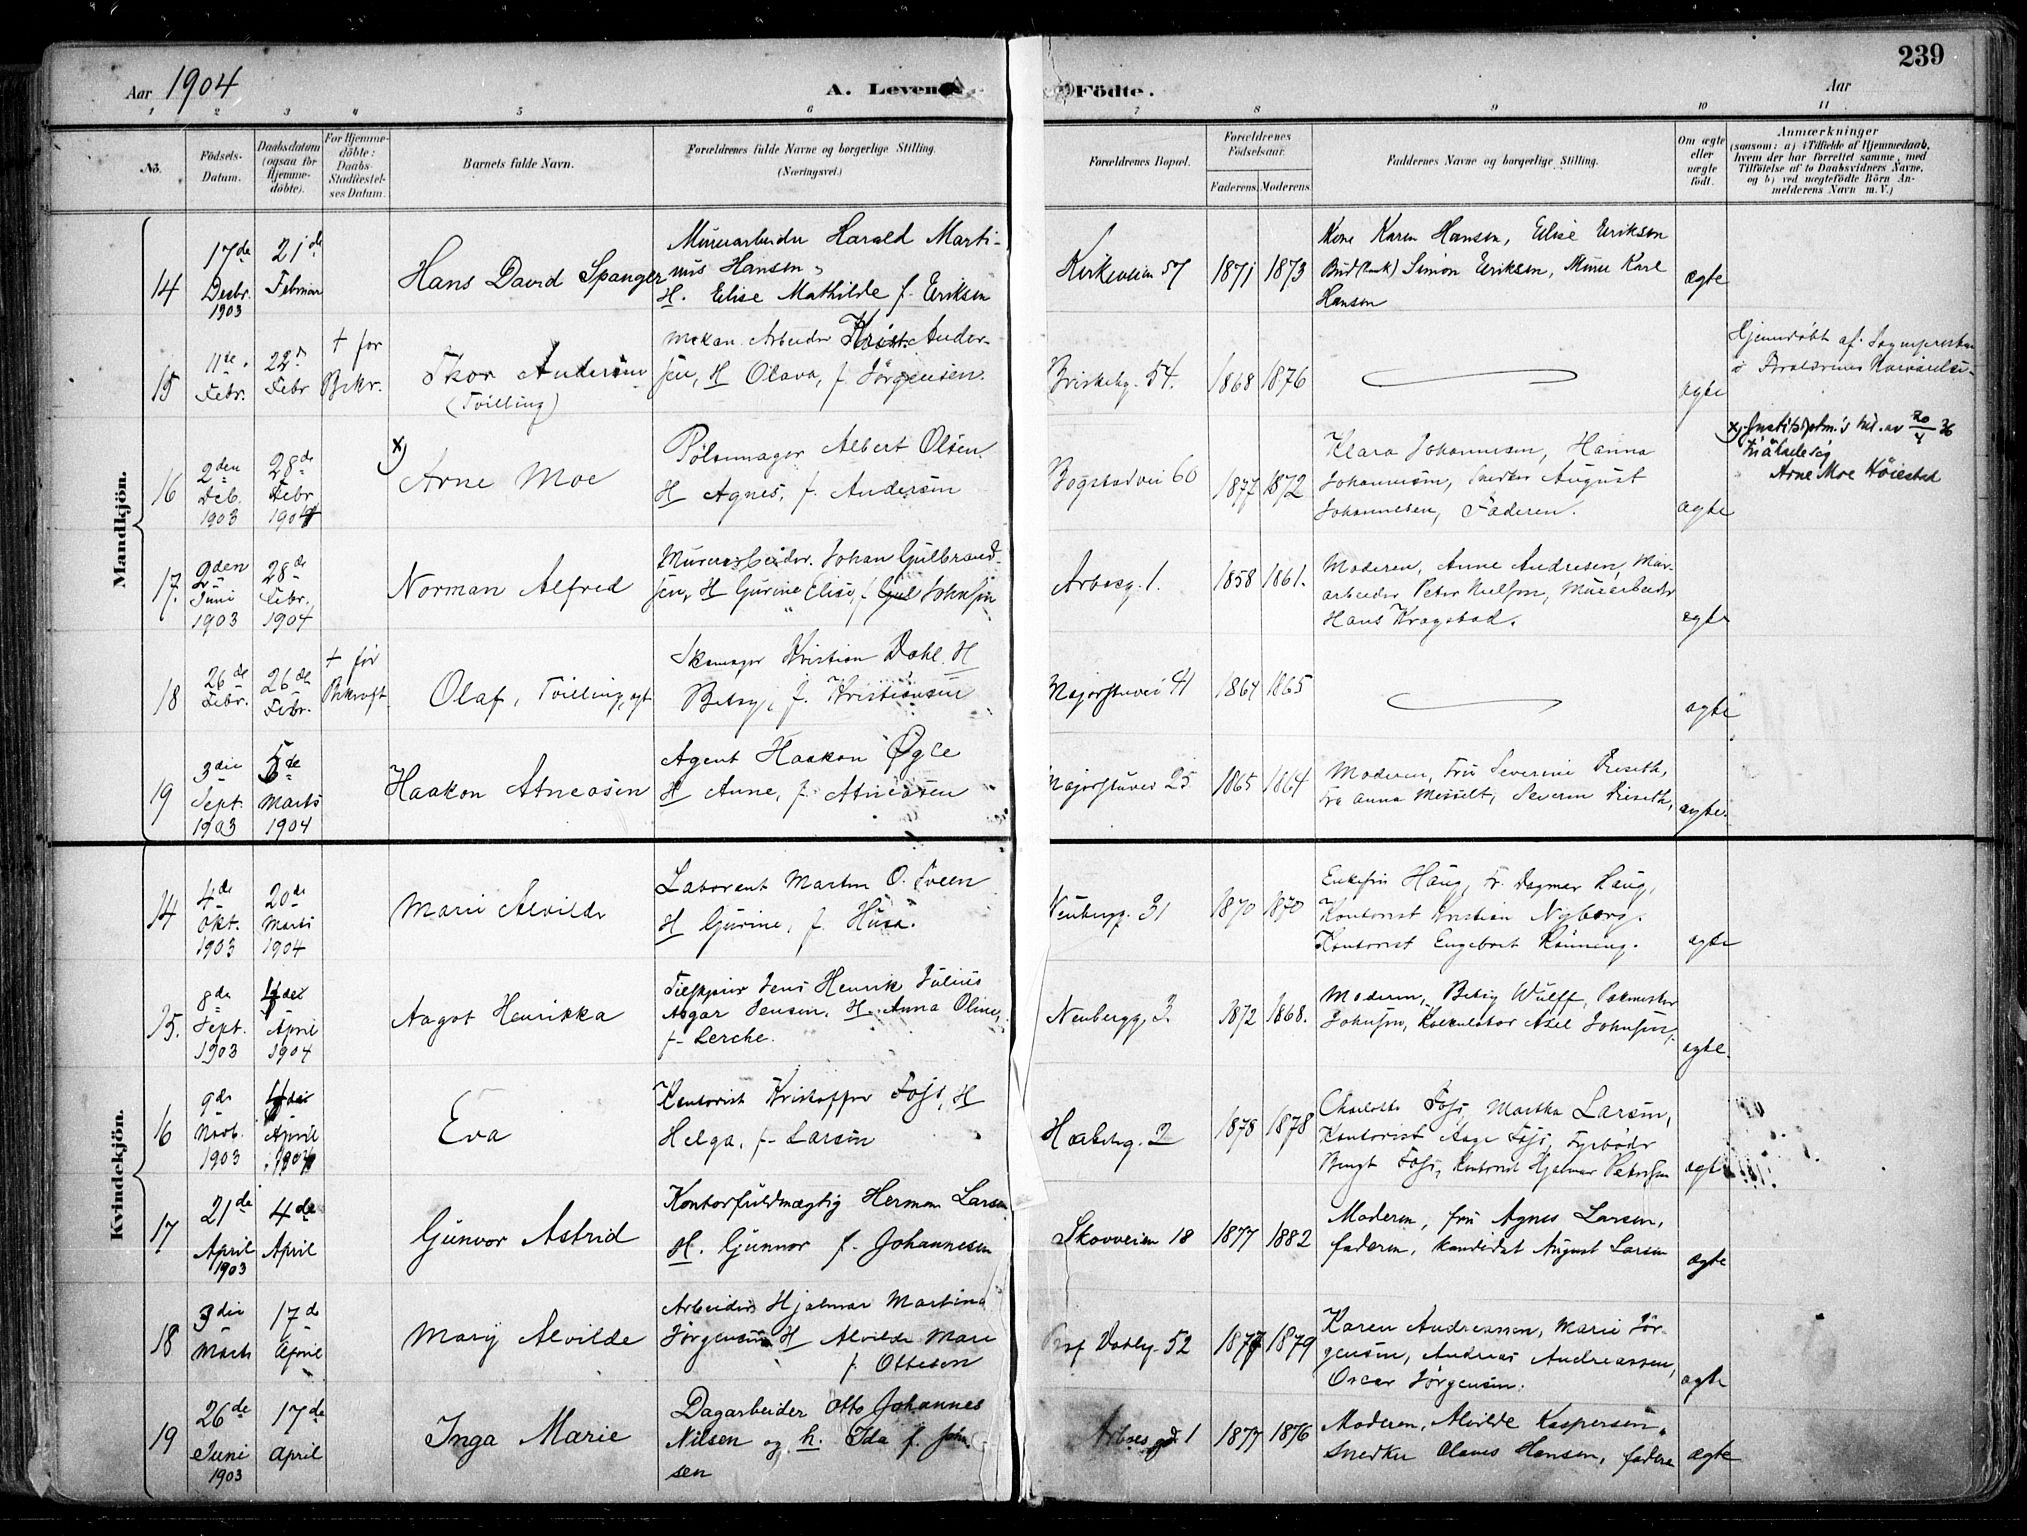 239
Aar 1904
A. Levende
Fødte.
Aar
1 2 3 4 5 6 7 8 9 10 11
No.
Fødsels-
Datum.
Daabsdatum
(ogsaa for
Hjemme-
døbte).
For Hjemme-
døbte:
Daabs-
Stadfæstel-
ses Datum.
Barnets fulde Navn.
Forældrenes fulde Navne og borgerlige Stilling.
(Næringsvei.)
Forældrenes Bopæl.
Forældrenes
Fødselsaar.
Faderens. Moderens.
Faddernes Navne og borgerlige Stilling.
Om ægte
eller
uægte
født.
Anmærkninger
(saasom: a) i Tilfælde af Hjemmedaab,
hvem der har forrettet samme, med
Tilføielse af to Daabsvidners Navne,
og b) ved uægtefødte Børn An-
melderens Navn m. V.)
Mandkjön.
14
17de
Decbr.
1903
21de
Februar
Hans David Spanger
Murerarbeider Harald Marti-
nius Hansen
H. Elise Mathilde f. Eriksen
Kirkeveien 57
1871 1873
Kone Karen Hansen, Elise Eriksen
Bud (Bank) Simon Eriksen, Murer Karl
Hansen
ægte
15
11te
Febr.
22d
Febr
+ før
Bekr.
Thor Andersen
(Tvilling)
Mekan. Arbeider Krist. Ander-
sen, H Olava, f. Jörgensen.
Briskebg. 54.
1868 1876
ægte
Hjemmedøbt af Sognepresten
16
2den
Feb.
1903
28de
Febr
1904
x)
Arne Moe
Pølsemager Albert Olsen
H Agnes, f. Andersen
Bogstadvei 60
1877 1872
Klara Johannesen, Hanna
Johannesen, Snedker August
Johannesen, Faderen.
ægte
x) Justitsdptm's med. av 20/4 36
tillades
Arne Moe Höiestad
17.
9den
Juni
1903
28de
Febr.
1904
Norman Alfred
Murerarbeider Johan Gulbrand-
sen, H Gurine Elise, f. Johnsen
Arbosg. 1.
1858 1861.
Moderen, Anne Andresen, Mur-
arbeider Peter Nielsen, Murerarbeider
Hans Kragstad.
ægte
18
26de
Febr.
26de
Febr.
+ før
Bekræft.
Olaf, Tvilling, ægt
Skomager Kristian Dahl. H
Betsy, f. Kristiansen
Majorstuvei 41
1864 1865
ægte
19
3die
Sept.
1903
5de
Marts
1904
Haakon Atneosen
Agent Haakon Øgle
H Anne, f. Atneosen
Majorstuvei 25
1865 1864
Moderen, Fru Severine Breseth,
Fra Anna Messelt, Severin Breseth,
ægte.
Kvindekjön.
14
4de
Okt.
1903
20de
Marts
1904
Marie Alvilde
Laborant Martin O. Tveen
H Gurine, f. Husa.
Neubergg. 31
1870 1870
Enkefru Haug, Fr. Dagmar Haug,
Kontorist Kristian Nyborg.
Kontorist Engebret Rönning.
ægte
15.
8de
Sept.
1903
4de
April
1904
Aagot Henrikka
Jens Henrik Julius
Asgar Jensen, H. Anna Oline,
f. Lerche.
Neubergg. 3.
1872 1868.
Moderen, Betsy Wulff, Pakmester
Johnsen, Kalkulator Axel Johnsen,
ægte.
16
9de
Novb.
1903
4de
April
1904
Eva
Kontorist Kristoffer Foss, H
Helga, f. Larsen
Hxebg. 2
1878 1878
Charlotte Foss, Martha Larsen,
Kontorist Aage Foss, Fyrbøder
Bengt Foss, Kontorist Hjalmar Petersen
ægte
17
21de
April
1903
4de
April
Gunvor Astrid
Kontorfuldmægtig Herman Larsen
H. Gunnor f. Johannesen
Skovveien 18
1877 1882
Moderen, fru Agnes Larsen,
faderen, kandidat August Larsen
ægte
18
3die
Marts
17de
April
Mary Alvilde
Arbeider Hjalmar Martinu
Jörgensen H Alvilde Marie
f. Ottesen
Prof Dahlsg. 52
1877 1879
Karen Andreassen, Marie Jør-
gensen, Andreas Andreassen,
Oscar Jørgensen.
ægte
19
26de
Juni
1903
17de
April
Inga Marie
Dagarbeider Otto Johannes
Nilsen og h. Ida f. Johan-
sen
Arboesgd. 1
1877 1876
Moderen, Alvilde Kaspersen,
Snedker Claus Hansen, faderen
ægte